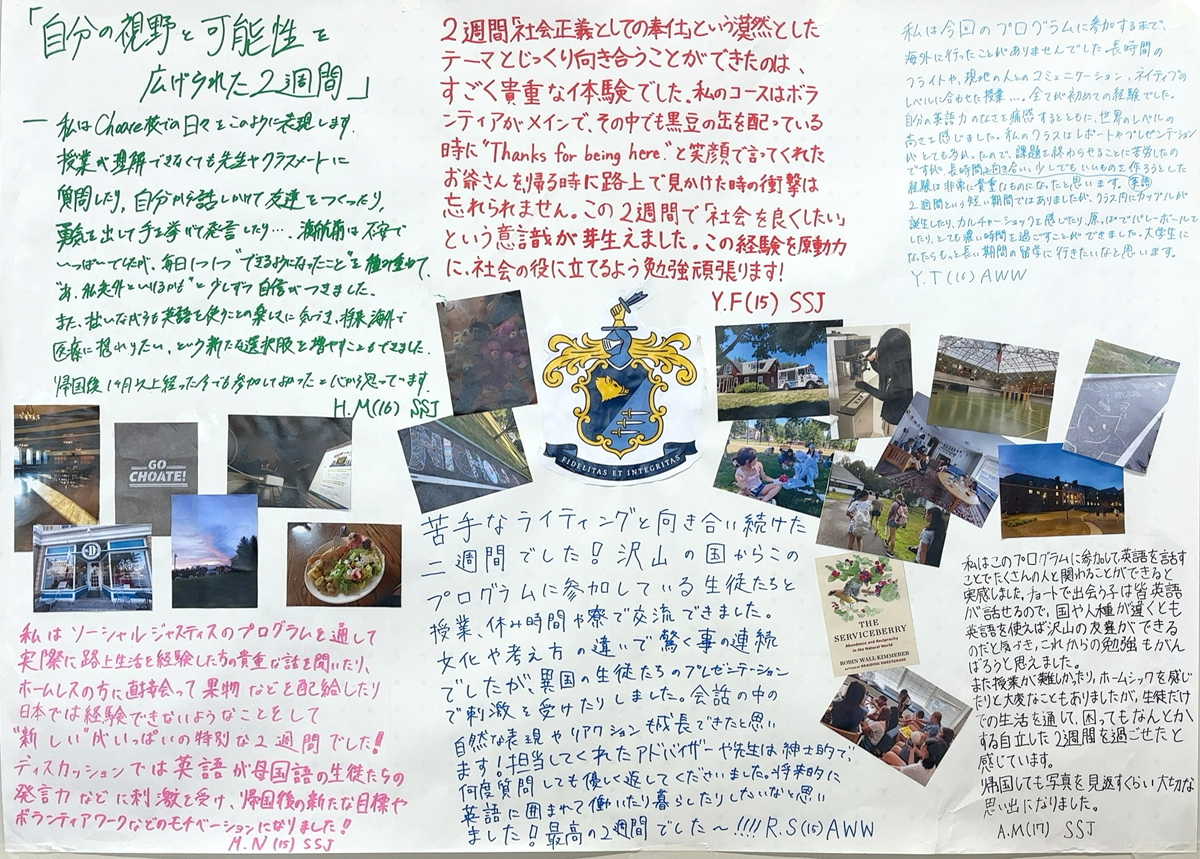 「自分の視野と可能性を
広げられた2週間」
― 私はChoare校での日々をこのように表現します。
授業が理解できなくても先生やクラスメートに
質問したり、自分から話しかけて友達をつくったり、
勇気を出して手を挙げて発言したり…。渡航前は不安で
いっぱいでしたが、毎日1つ1つ"できるようになったこと"を積み重ねて、
"あ、私意外といけるかも"と少しずつ自信がつきました。
また、拙いながらも英語を使うことの楽しさに気づき、将来海外で
医療に携わりたい、という新たな選択肢を増やすこともできました。
帰国後1ヶ月以上経った今でも参加してよかったと心から思っています。
H.M(16) SSJ
2週間「社会正義としての奉仕」という漠然とした
テーマとじっくり向き合うことができたのは、
すごく貴重な体験でした。私のコースはボラ
ンティアがメインで、その中でも黒豆の缶を配っている
時に"Thanks for being here."と笑顔で言ってくれた
お爺さんを帰る時に路上で見かけた時の衝撃は
忘れられません。この2週間で「社会を良くしたい」
という意識が芽生えました。この経験を原動力
に、社会の役に立てるよう勉強頑張ります!
Y.F(15) SSJ
私は今回のプログラムに参加するまで、
海外に行ったことがありませんでした。長時間の
フライトや、現地の人とのコミュニケーション、ネイティブの
レベルに合わせた授業….全てが初めての経験でした。
自分の英語力のなさを痛感するとともに、世界のレベルの
高さを感じました。私のクラスはレポートやプレゼンテーション
がとても多かったので、課題を終わらせることに苦労したの
ですが、長時間向き合い、少しでもいいものを作ろうとした
経験は非常に貴重なものになったと思います。英語
2週間という短い期間ではありましたが、クラス内にカップルが
誕生したり、カルチャーショックを感じたり、原っぱでバレーボールを
したり、とても濃い時間を過ごすことができました。大学生に
なったらもっと長い期間の留学に行きたいなと思います。
Y.T(16) AWW
FIDELITAS ET INTEGRITAS
GO
CHOATE!
D
私はソーシャルジャスティスのプログラムを通して
実際に路上生活を経験した方の貴重な話を聞いたり、
ホームレスの方に直接会って果物などを配給したり
日本では経験できないようなことをして
"新しい"がいっぱいの特別な2週間でした!
ディスカッションでは英語が母国語の生徒たちの
発言力などに刺激を受け、帰国後の新たな目標や
ボランティアワークなどのモチベーションになりました!
M.N(15) SSJ
苦手なライティングと向き合い続けた
二週間でした!沢山の国からこの
プログラムに参加している生徒たちと
授業、休み時間や寮で交流できました。
文化や考え方の違いで驚く事の連続
でしたが、異国の生徒たちのプレゼンテーション
で刺激を受けたりしました。会話の中の
自然な表現やリアクションも成長できたと思い
ます!担当してくれたアドバイザーや先生は紳士的で、
何度質問しても優しく返してくださいました。将来的に
英語に囲まれて働いたり暮らしたりしたいなと思い
ました!最高の2週間でした〜!!!! R.S(15) AWW
THE
SERVICEBERRY
Abundance and Reciprocity
in the Natural World
ROBIN WALL KIMMERER
私はこのプログラムに参加して、英語を話す
ことでたくさんの人と関わることができると
実感しました。チョートで出会う子は皆英語
が話せるので、国や人種が違くとも
英語を使えば沢山の友達ができる
のだと気づき、これからの勉強もがん
ばろうと思えました。
また授業が難しかったり、ホームシックを感じ
たりと大変なこともありましたが、生徒だけ
での生活を通して、困ってもなんとか
する自立した2週間を過ごせたと
感じています。
帰国しても写真を見返すくらい大切な
思い出になりました。
A.M(17) SSJ